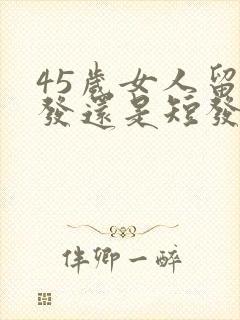 45歲女人留
發還是短發
伴卿一醉